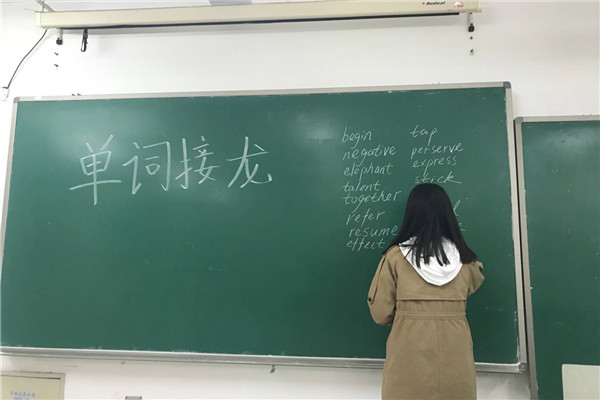 单词接龙
begin
negative
elephant
talent
together
refer
resume
effect
tap
perserve
express
stick
Redleaf